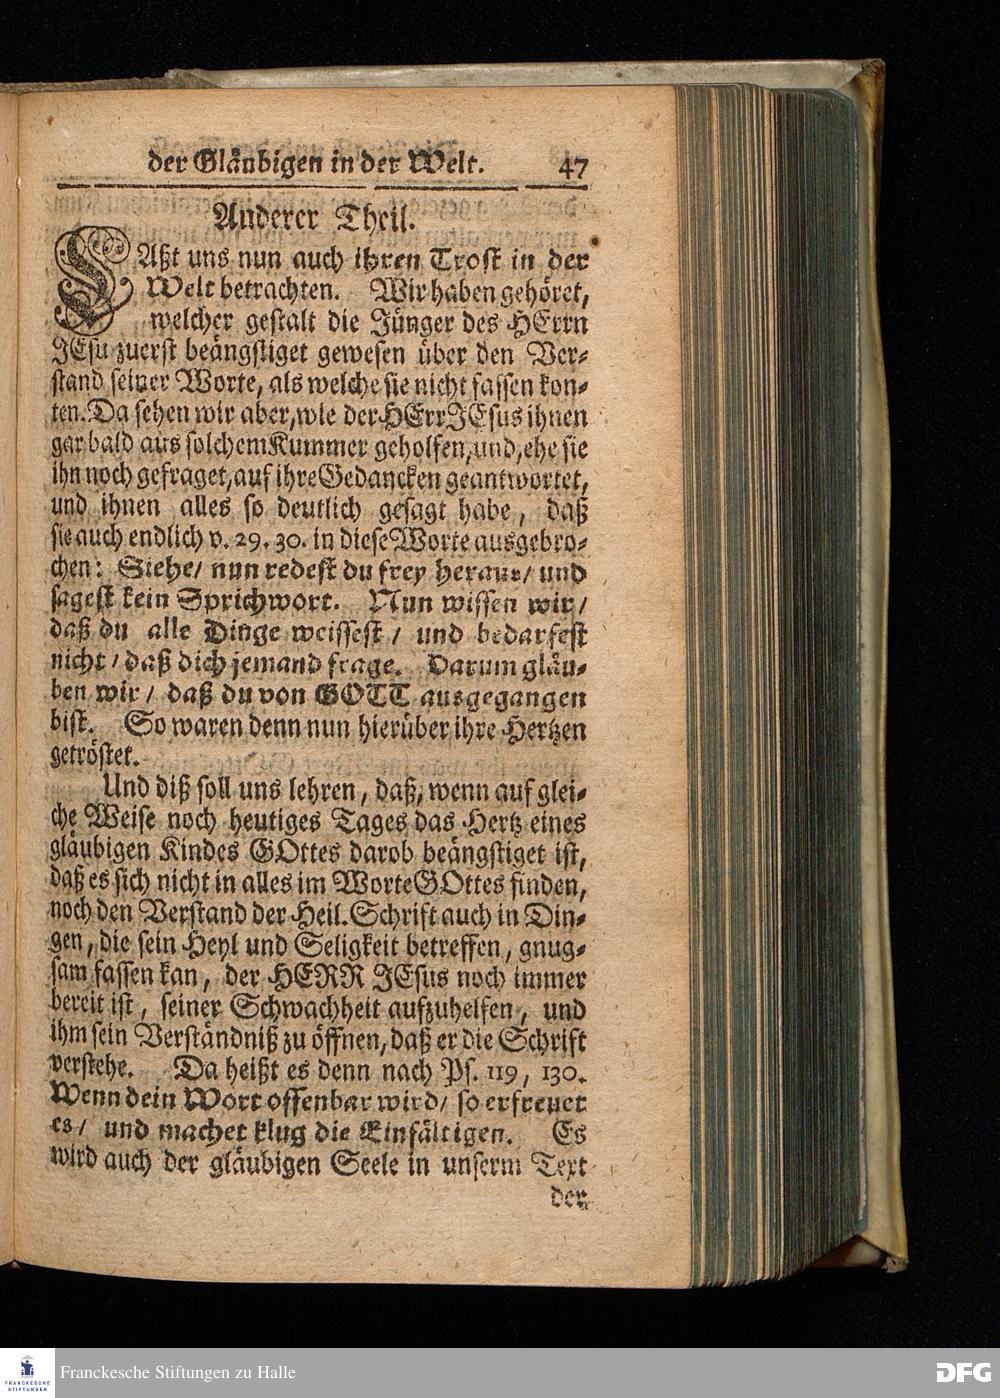 der Gläubigen in der Welt. 47
Anderer Theil.
LAßt uns nun auch ihren Trost in der
Welt betrachten. Wir haben gehöret,
welcher gestalt die Jünger des HErrn
JEsu zuerst beängstiget gewesen über den Ver-
stand seiner Worte, als welche sie nicht fassen kon-
ten. Da sehen wir aber, wie der HErr JEsus ihnen
gar bald aus solchem Kummer geholfen, und, ehe sie
ihn noch gefraget, auf ihre Gedancken geantwortet,
und ihnen alles so deutlich gesagt habe, daß
sie auch endlich v. 29. 30. in diese Worte ausgebro-
chen: Siehe/ nun redest du frey heraus/ und
sagest kein Sprichwort. Nun wissen wir/
daß du alle Dinge weissest/ und bedarfest
nicht/ daß dich jemand frage. Darum gläu-
ben wir/ daß du von GOTT ausgegangen
bist. So waren denn nun hierüber ihre Hertzen
getröstet.
Und diß soll uns lehren, daß, wenn auf glei-
che Weise noch heutiges Tages das Hertz eines
gläubigen Kindes GOttes darob beängstiget ist,
daß es sich nicht in alles im Worte GOttes finden,
noch den Verstand der Heil. Schrift auch in Din-
gen, die sein Heyl und Seligkeit betreffen, gnug-
sam fassen kan, der HERR JEsus noch immer
bereit ist, seiner Schwachheit aufzuhelfen, und
ihm sein Verständniß zu öffnen, daß er die Schrift
verstehe. Da heißt es denn nach Ps. 119, 130.
Wenn dein Wort offenbar wird/ so erfreuet
es/ und machet klug die Einfältigen. Es
wird auch der gläubigen Seele in unserm Text
der
FRANCKESCHE
STIFTUNGEN
Franckesche Stiftungen zu Halle
DFG